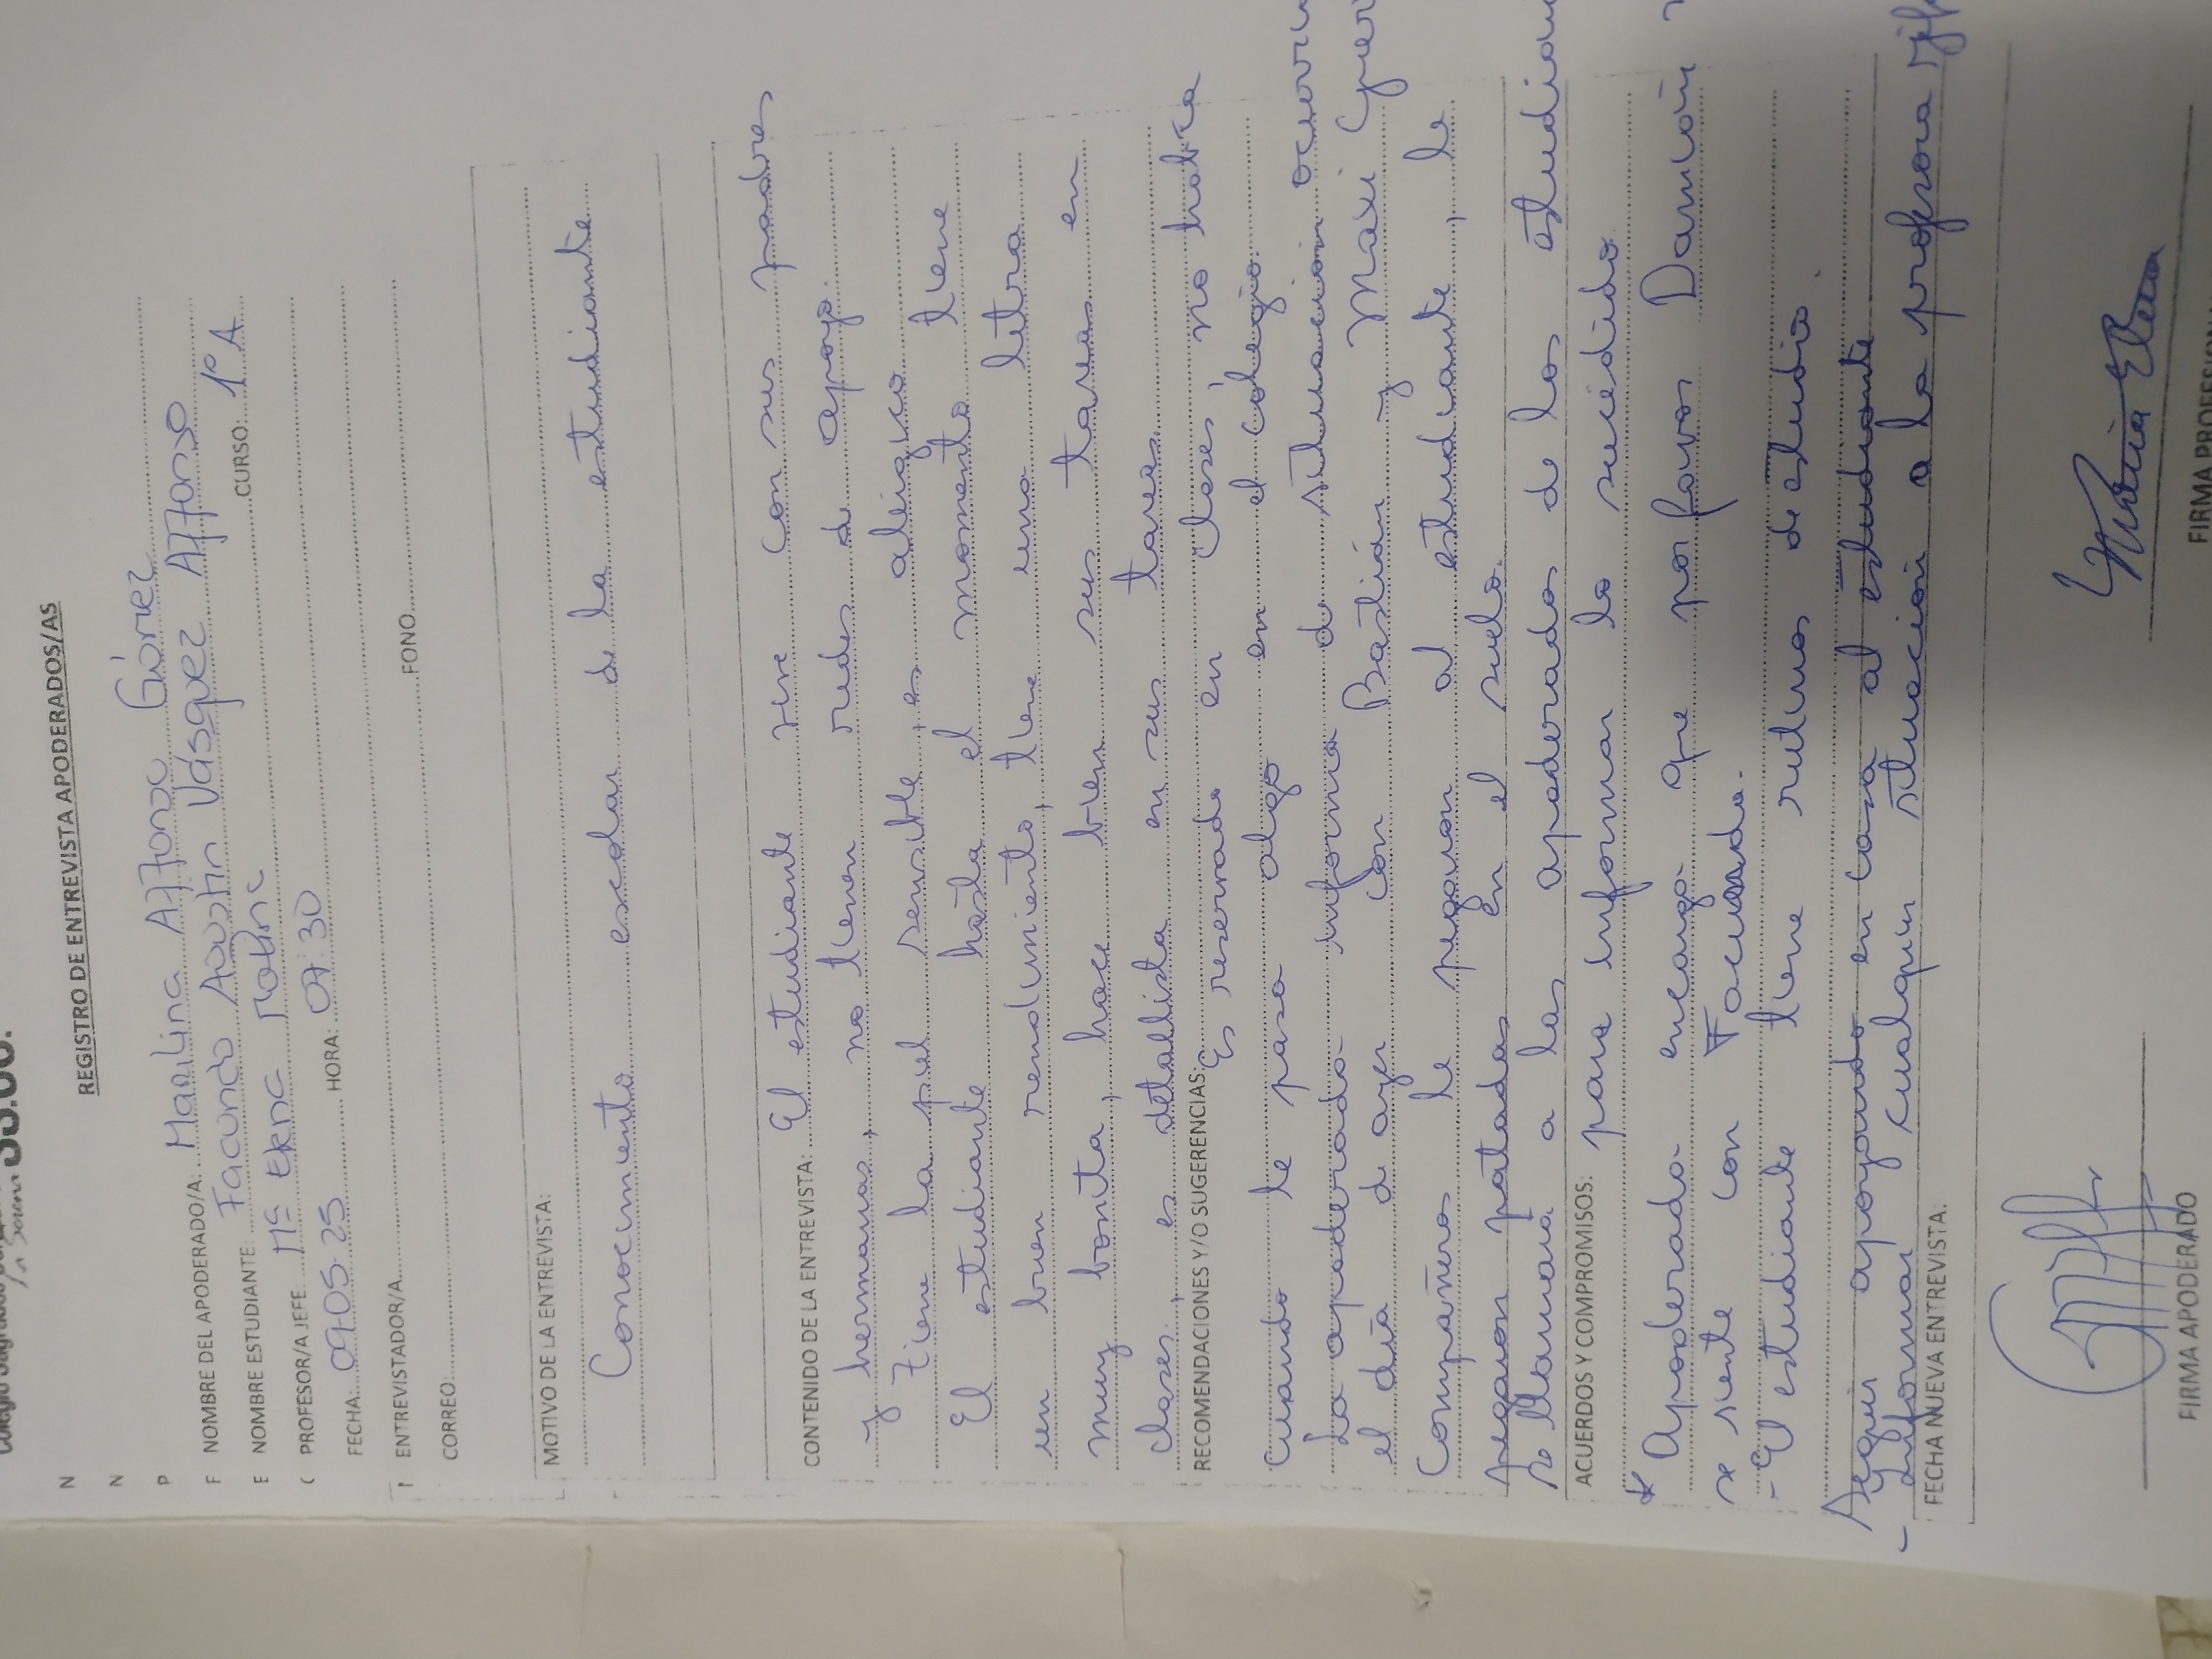 REGISTRO DE ENTREVISTA APODERADOS/AS
N
N
P
F NOMBRE DEL APODERADO/A: Marlina Alfonzo Gómez
E NOMBRE ESTUDIANTE: Facundo Agustin Vásquez Alfonzo
( PROFESOR/A JEFE: Mª Elena CURSO: 1º A
FECHA: 09-05-25 HORA: 07:30
ENTREVISTADOR/A FONO
CORREO:
MOTIVO DE LA ENTREVISTA:
Conocimiento escolar de la estudiante
CONTENIDO DE LA ENTREVISTA: El estudiante vive con sus padres
y hermanas, no tienen redes de apoyo.
Tiene la piel sensible, es alérgico
El estudiante hasta el momento tiene
un buen rendimiento, tiene una letra
muy bonita, hace bien sus tareas en
clases, es detallista en sus tareas.
RECOMENDACIONES Y/O SUGERENCIAS: Es reservado en clases, no habla
cuando le pasa algo en el colegio.
La apoderada informa de situación
el día de ayer con Bastián y Maxi
Compañeros le pegaron al estudiante, le
pegaron patadas en el suelo.
Se llamará a las apoderadas de los
ACUERDOS Y COMPROMISOS: para informar lo sucedido
* Apoderada encarga que por favor Damián
se siente con Facundo.
- El estudiante tiene rutinas de estudio.
Seguir apoyando en casa al estudiante
- Informar cualquier situación a la profesora
FECHA NUEVA ENTREVISTA:
FIRMA APODERADO
FIRMA PROFESIONAL